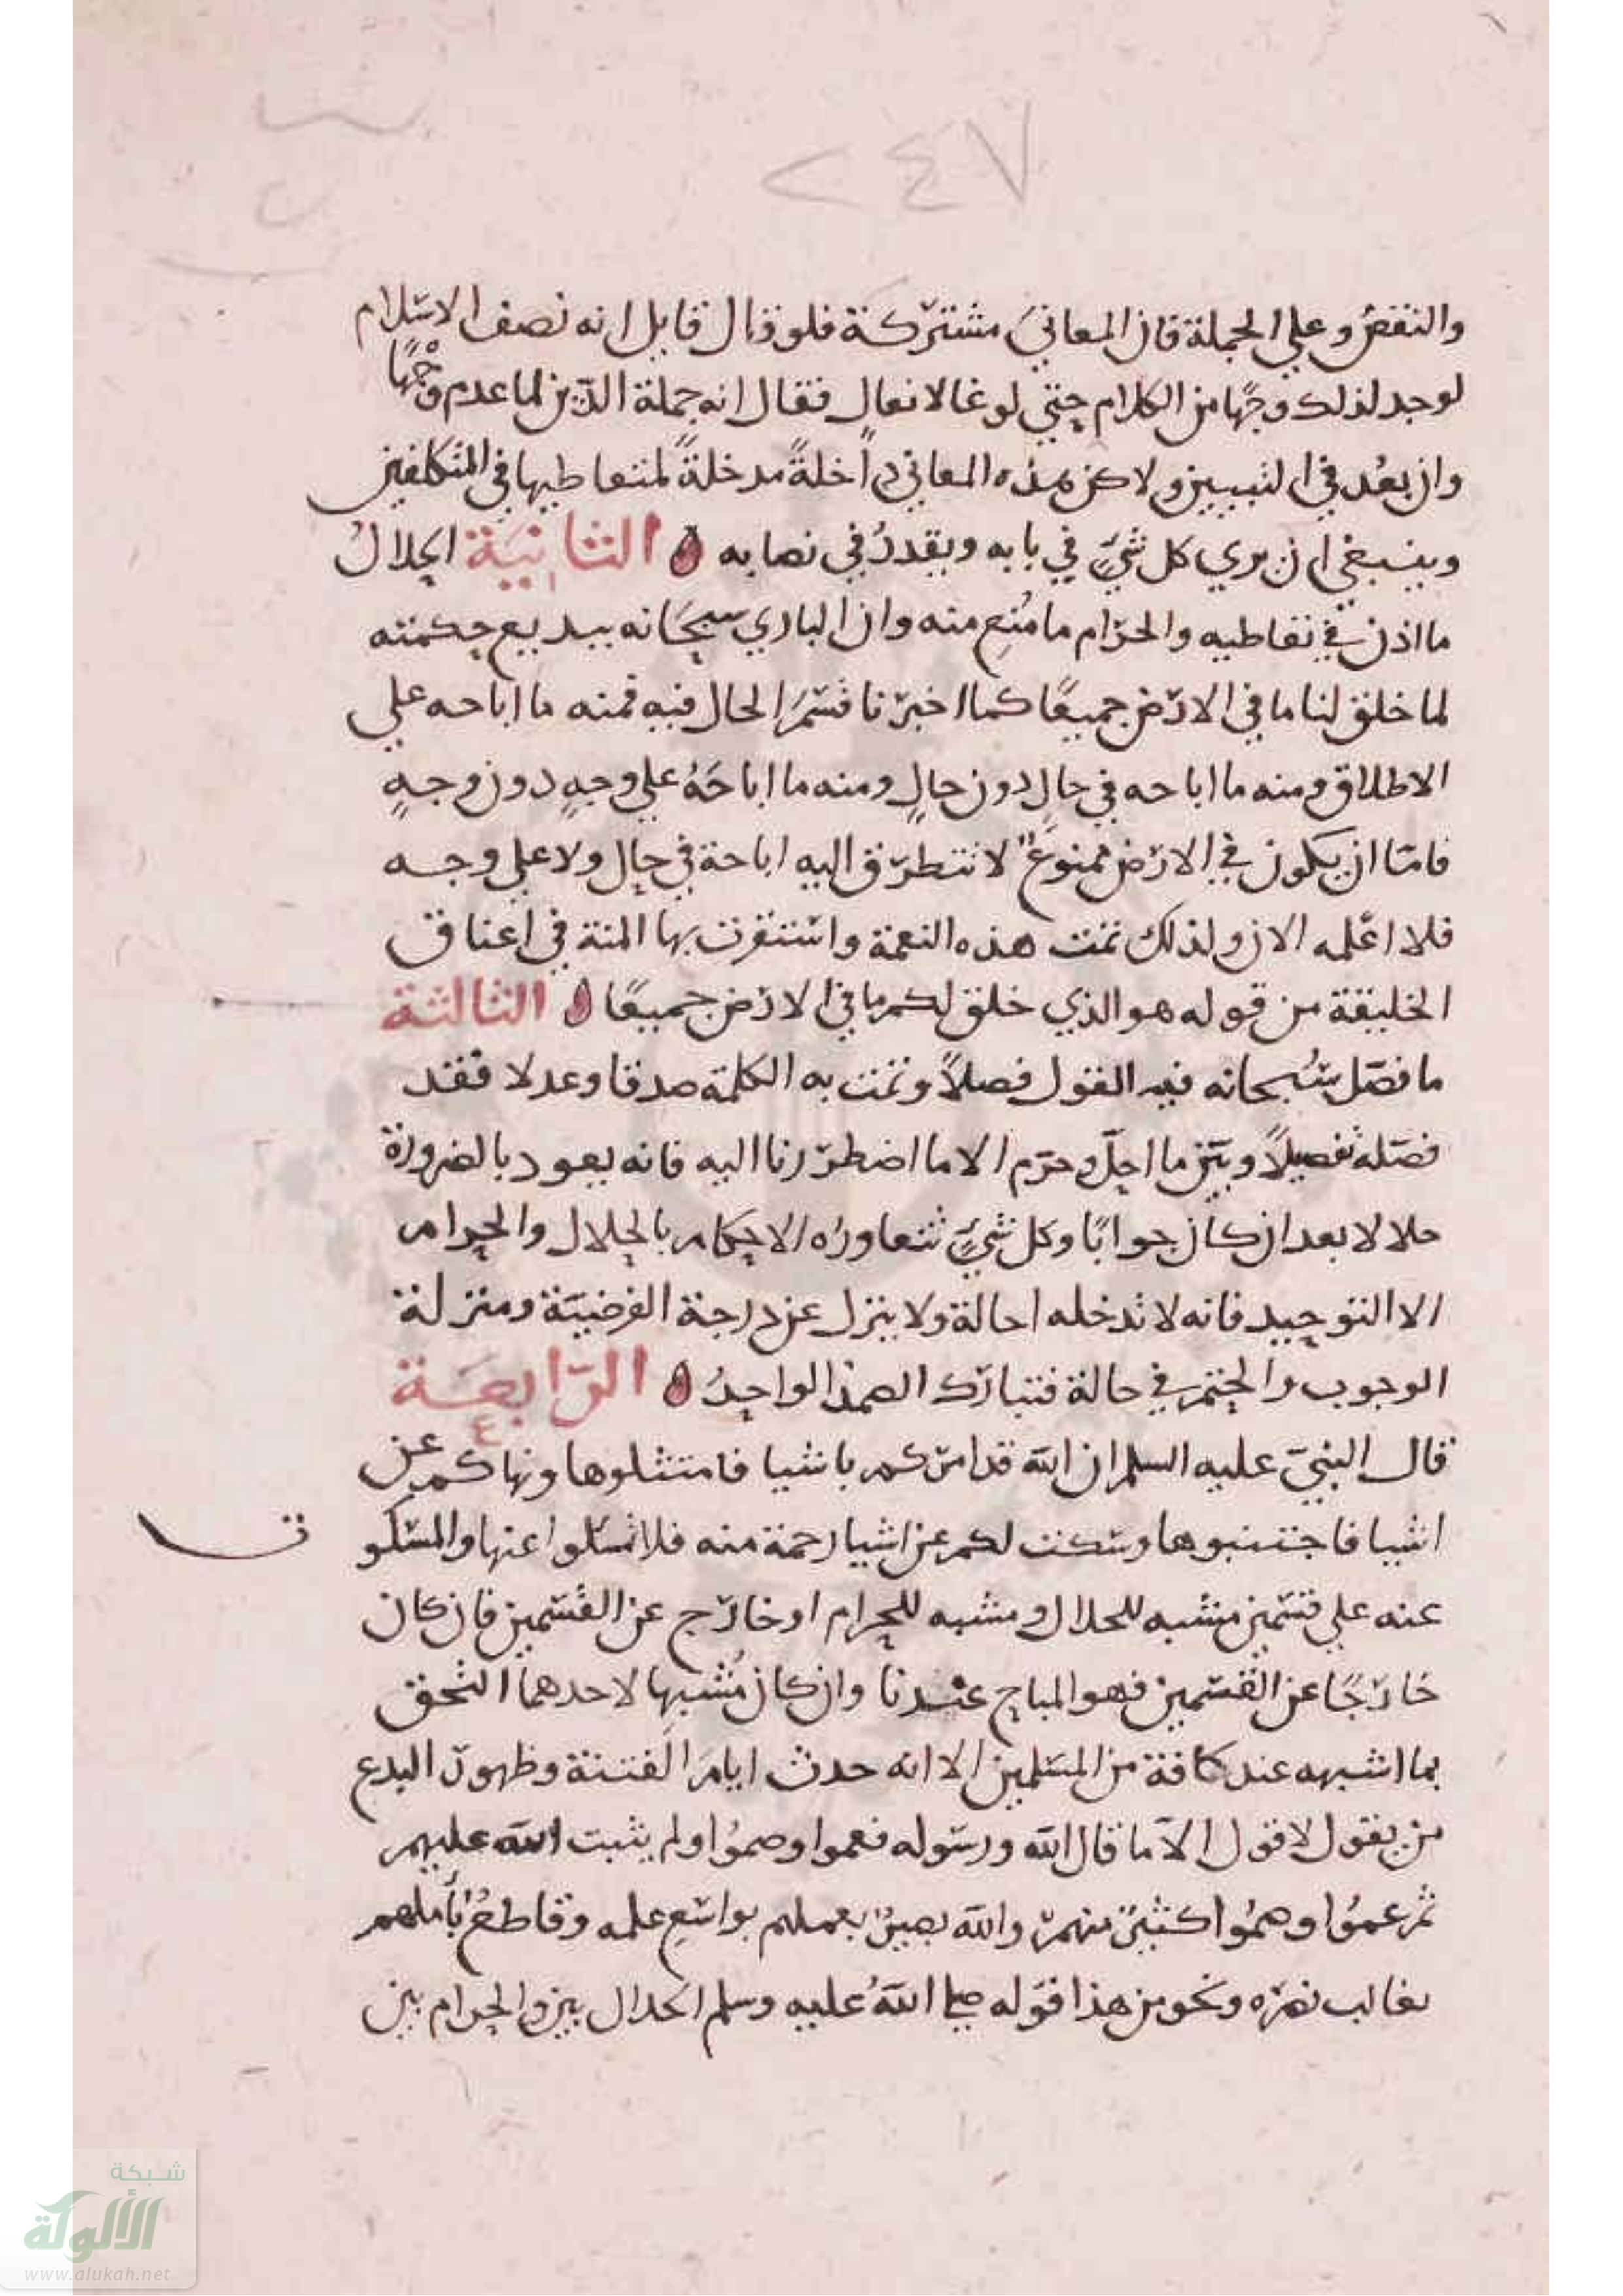 ٢٤٧
والنقض وعلي الجملة فان المعاني مشتركة فلو قال قايل انه نصف الاسلام
لوجد لذلك وجها من الكلام حتي لو غالا فقال انه جملة الدين لما عدم وجها
وان بعد في التبيين ولاكن هذه المعاني داخلة مدخلة لمتعاطيها في المتكلفين
وينبغي ان يري كل شيء في بابه ويقدر في نصابه الثانية الحلال
ما اذن في تعاطيه والحرام ما مُنِع منه وان الباري سبحانه ببديع حكمته
لما خلق لنا ما في الارض جميعًا كما اخبرنا قسم الحال فيه فمنه ما اباحه علي
الاطلاق ومنه ما اباحه في حال دون حالٍ ومنه ما اباحَهُ علي وجهٍ دون وجهٍ
فامّا ان يكون في الارض ممنوع لا تتطرق اليه اباحة في حال ولا علي وجه
فلا اعلمه الان ولذلك تمت هذه النعمة واستقرت بها المنة في اعناق
الخليقة من قوله هو الذي خلق لكم ما في الارض جميعًا الثالثة
ما فصل سُبحانه فيه القول فصلاً وتمت به الكلمة صدقا وعدلا فقد
فصّله تفصيلاً وبيّن ما احلّ وحرّم الا ما اضطررنا اليه فانه يعود بالضرورة
حلالا بعد ان كان حرامًا وكل شيءٍ تتعاوره الاحكام بالحلال والحرام
الا التوحيد فانه لا تدخله احالة ولا ينزل عن درجة الفرضيّة ومنزلة
الوجوب والحتم في حالة فتبارك الصمد الواحدُ الرّابعَة
٤
قال النبيّ عليه السلم ان الله قد امركم باشيا فامتثلوها ونهاكم عن
اشيا فاجتنبوها وسكت لكم عن اشيا رحمة منه فلا تسلوا عنها والمسكو
ت
عنه علي قسمين مشبه للحلال ومشبه للحرام او خارج عن القسمين فان كان
خارجًا عن القسمين فهو المباح عندنا وان كان مُشبهِا لاحدهما التحق
بما اشبهه عند كافة من المسلمين الا انه حدث ايام الفتنة وظهور البدع
من يقول لا قول الا ما قال الله ورسوله فعموا وصمُوا ولم يثبت الله عليهم
ثم عمُوا وصمُوا كثير منهم والله بصيرٌ بعملهم بواسع علمه وقاطعُ بأملهم
بغالب نصره ونحو من هذا قوله صلي اللهُ عليه وسلم الحلال بين والحرام بين
شبكة
الألوكة
www.alukah.net